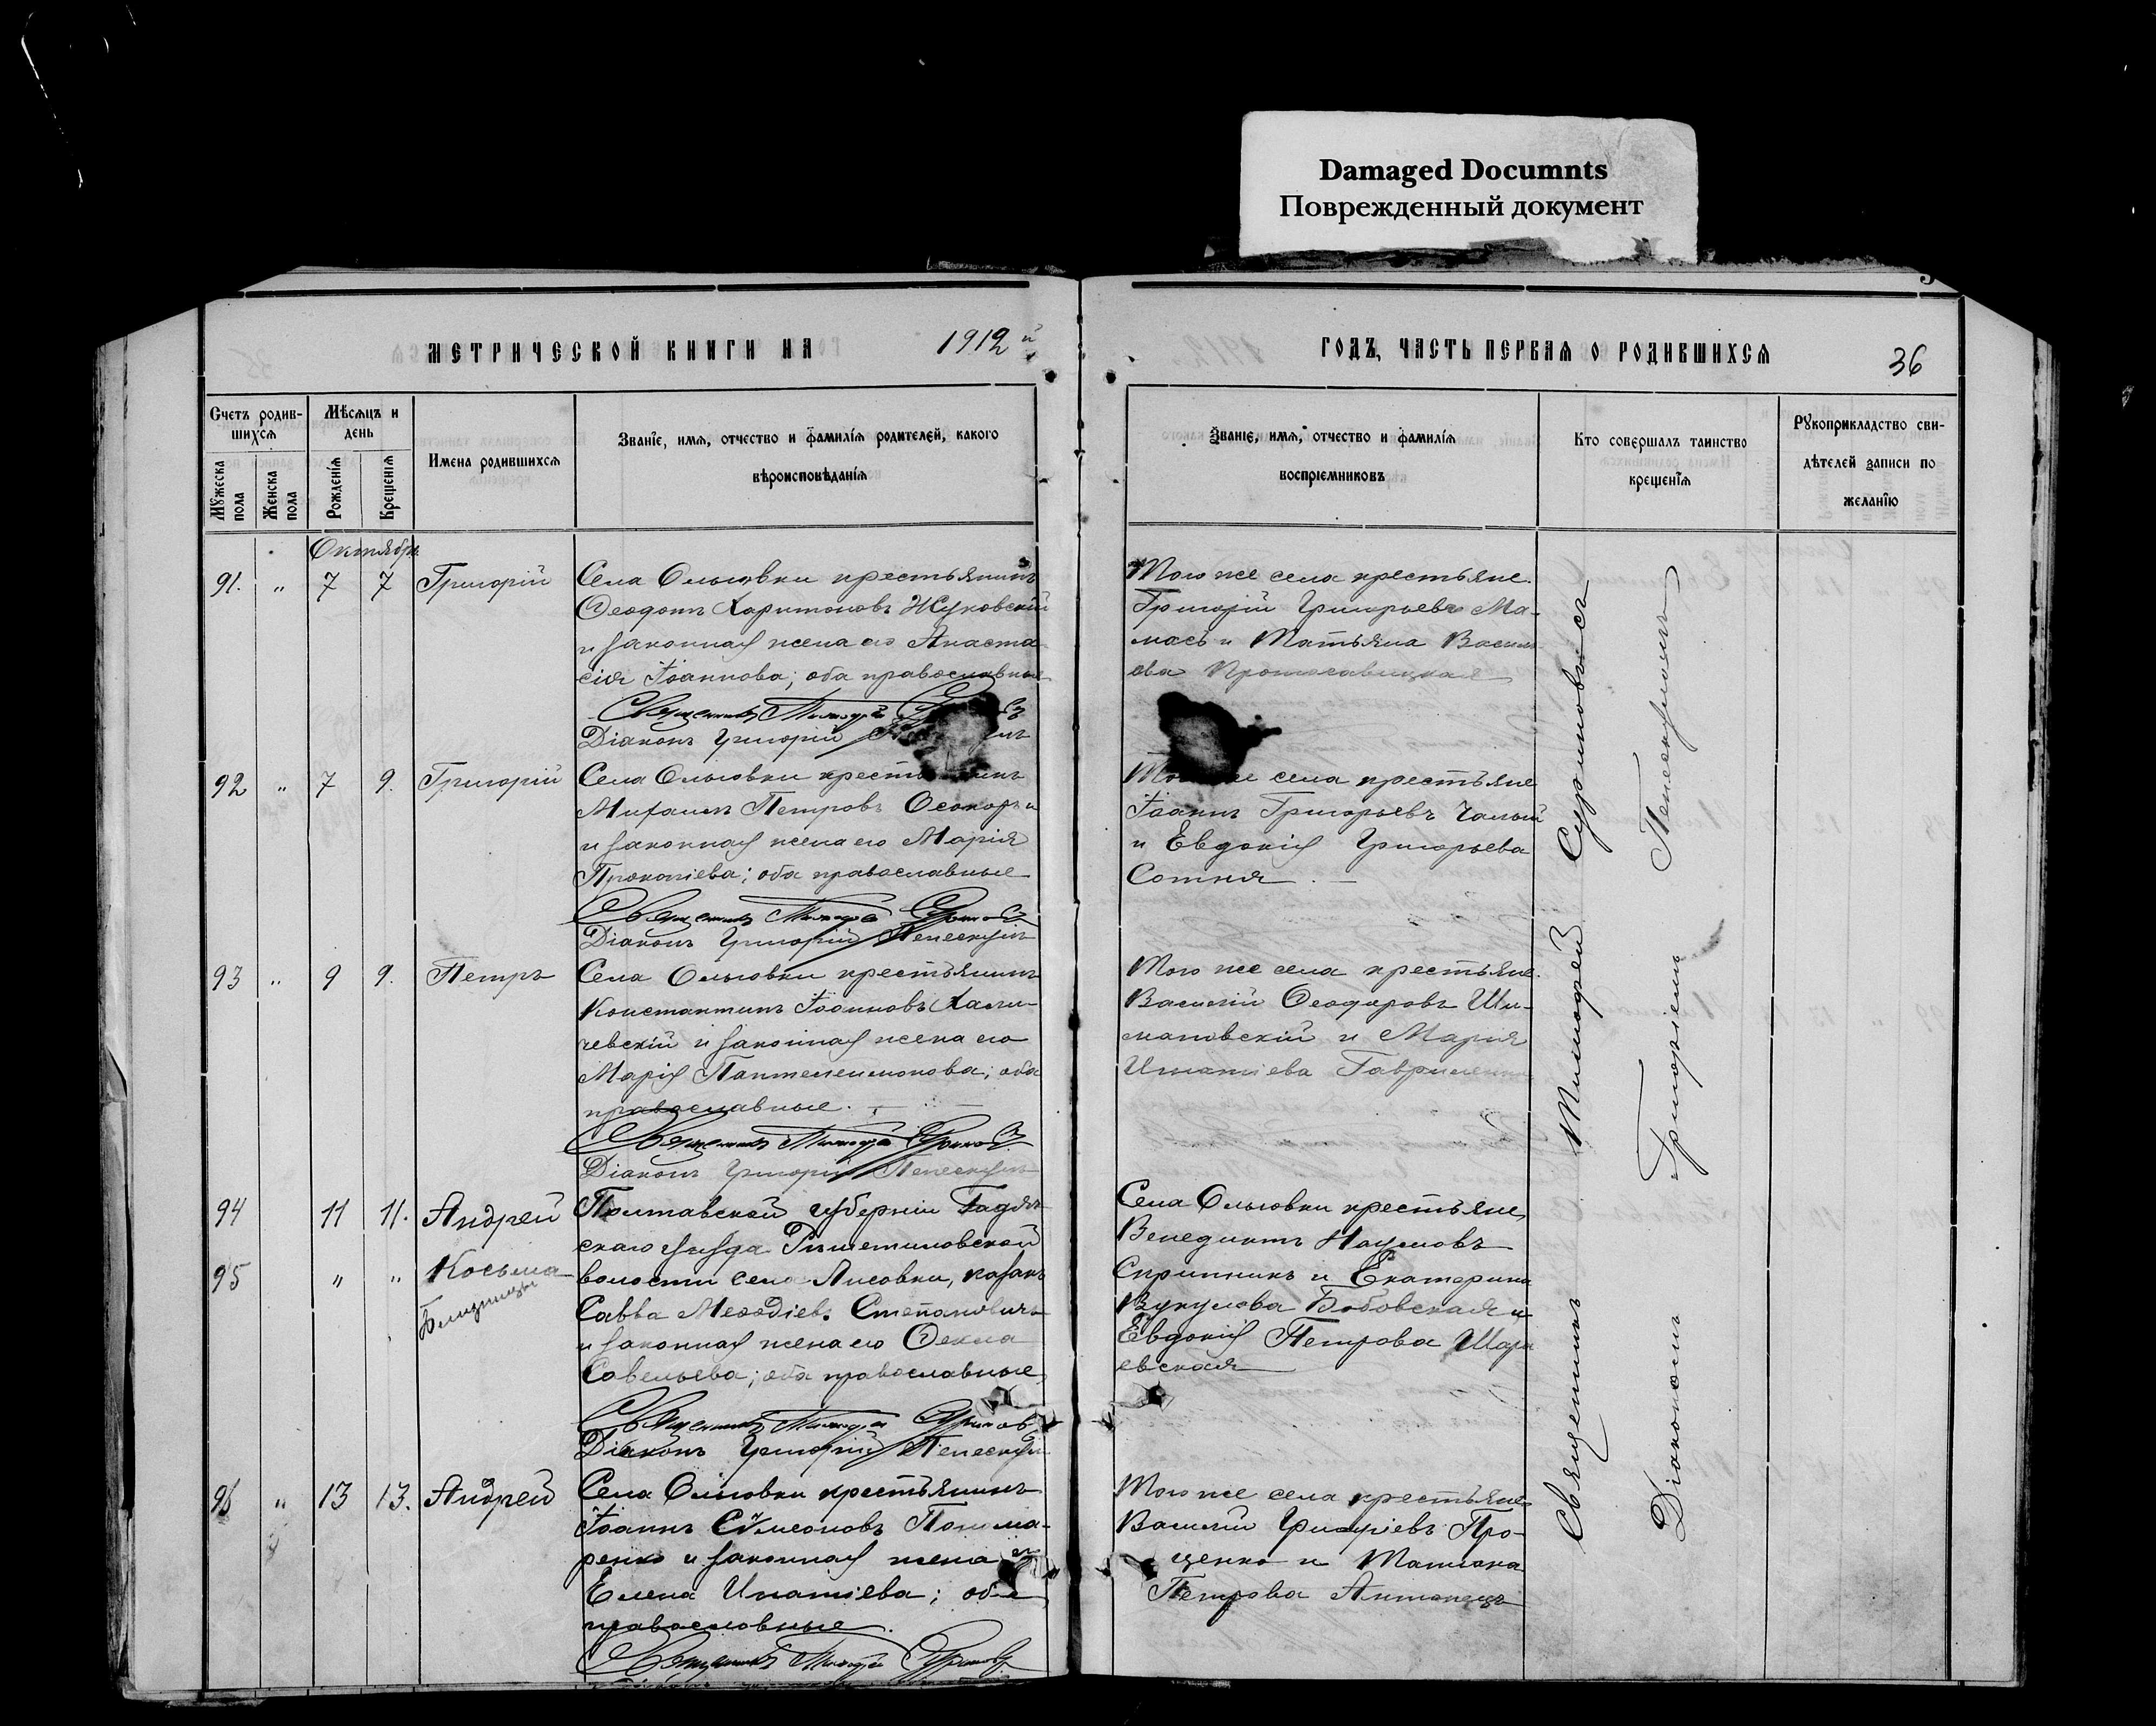 Damaged Documnts
Поврежденный документ
МЕТРИЧЕСКОЙ КНИГИ НА 1912 й
ГОДЪ, ЧАСТЬ ПЕРВАЯ О РОДИВШИХСЯ 36
Счетъ родив-
шихся
Мужеска пола
Женска пола
Мѣсяцъ и
день
Рожденія
Крещенія
Имена родившихся
Званіе, имя, отчество и фамилія родителей, какого
вѣроисповѣданія
Званіе, имя, отчество и фамилія
воспріемниковъ
Кто совершалъ таинство
крещенія
Рукоприкладство сви-
дѣтелей записи по
желанію
Октябрь
91. " 7 7 Григорій
Села Ольговки крестьянинъ
Ѳеодотъ Харитоновъ Жуковскій
и законная жена его Анаста-
сія Іоаннова; оба православные
Священникъ Тимофей
Діаконъ Григорій
Того же села крестьяне
Григорій Григорьевъ Ма-
мась и Татьяна Василь-
ева
92 " 7 9. Григорій
Села Ольговки
Михаилъ Петровъ Осокоръ
и законная жена его Марія
Прокопіева; оба православные
Священникъ Тимофей Суриновъ
Діаконъ Григорій Пелескулъ
села крестьяне
Іоаннъ Григорьевъ Чалый
и Евдокія Григорьева
Сотня
93 " 9 9. Петръ
Села Ольговки крестьянинъ
Константинъ Іоанновъ
чевскій и законная жена его
Марія Пантелеимонова; оба
православные.
Священникъ Тимофей Суриновъ
Діаконъ Григорій Пелескулъ
Того же села крестьяне
Василій Ѳеодоровъ Ши-
мановскій и Марія
Игнатіева Гавриленко
94 11 11. Андрей
95 " " Косьма
Близнецы
Полтавской губерніи Гадяч-
скаго уѣзда Рѣшетиловской
волости села Лисовки, казакъ
Савва Меѳодіевъ Степановичъ
и законная жена его Ѳекла
Савельева; оба православные
Священникъ Тимофей Суриновъ
Діаконъ Григорій Пелескулъ
Села Ольговки крестьяне
Венедиктъ Наумовъ
Скрипникъ и Екатерина
Вукулова Бобовская и
Евдокія Петрова
евская
96 " 13 13. Андрей
Села Ольговки крестьянинъ
Іоаннъ Сѵмеоновъ
ренко и законная жена его
Елена Игнатіева; оба
православные.
Священникъ Тимофей Суриновъ
Того же села крестьяне
Василій Григоріевъ Про-
ценко и Татіана
Петрова Антонецъ
Священникъ Тимофей Суриновъ съ
Діакономъ Григоріемъ Пелескуломъ